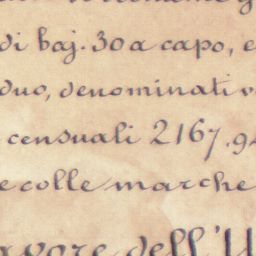 di baj. 30 a capo, e
duo, denominati v
censuali 2167.94
e colle marche
avore dell'U